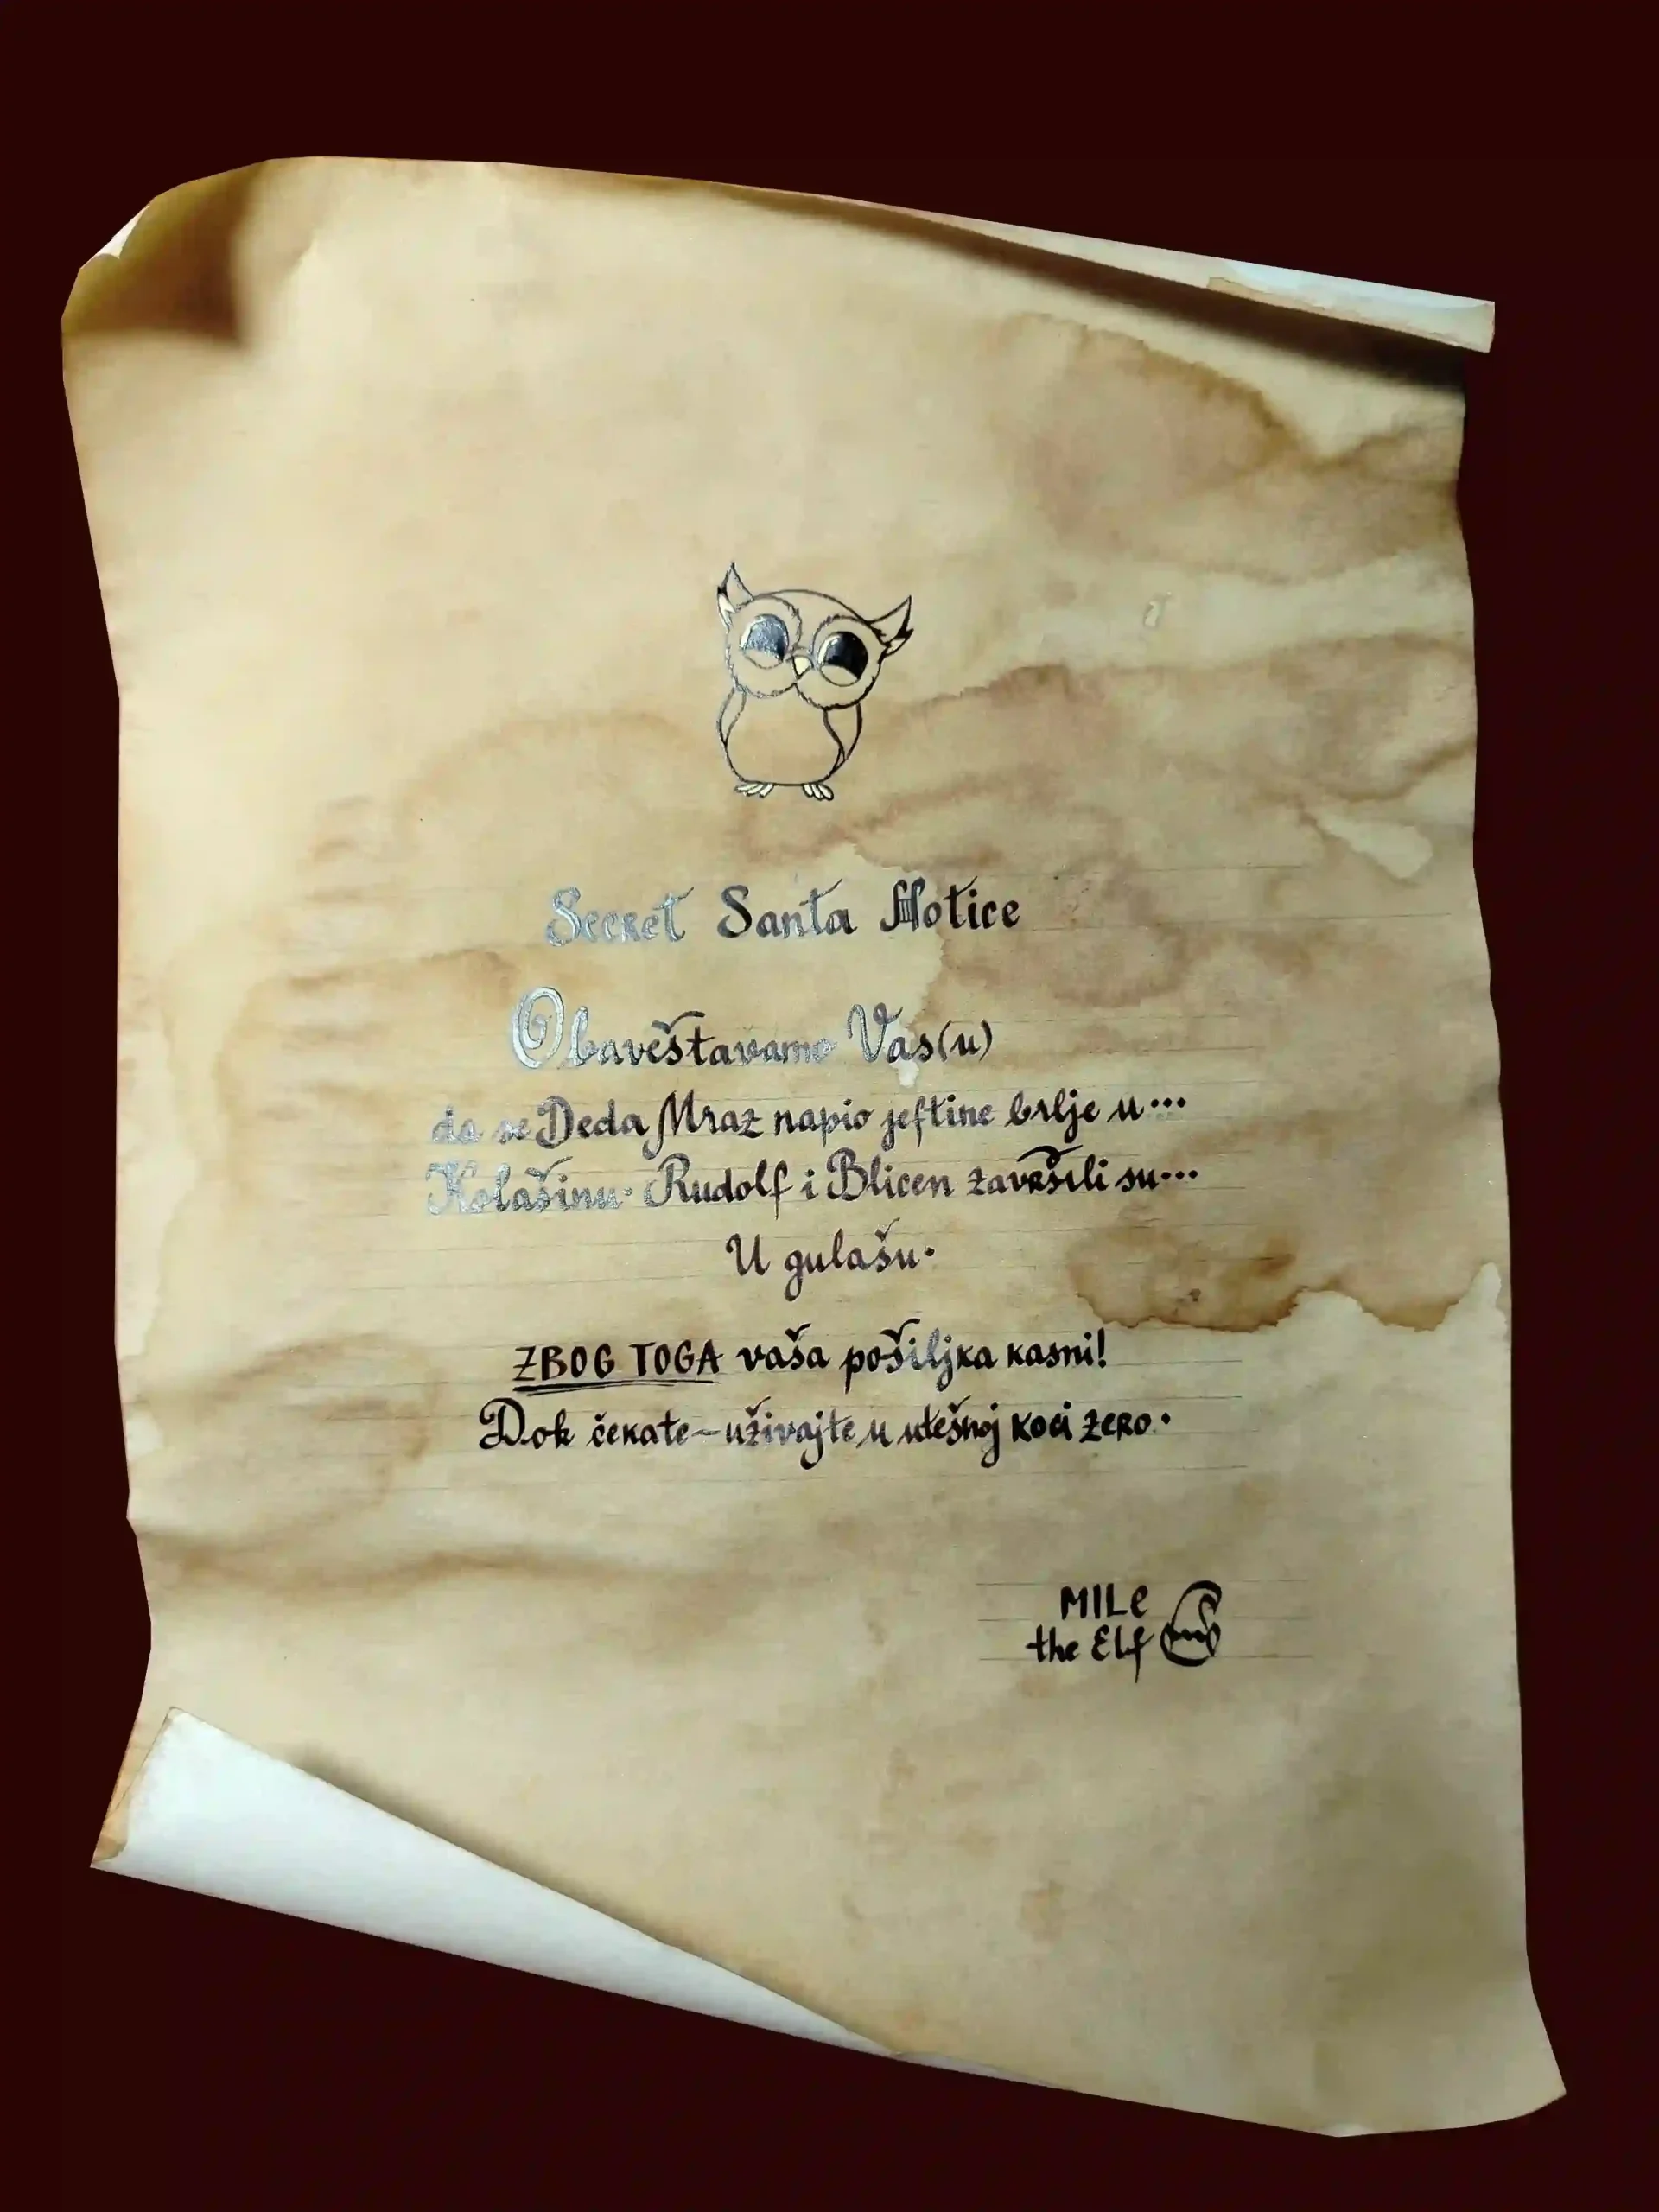 Secret Santa Notice
Obaveštavamo Vas(u)
da se Deda Mraz napio jeftine brlje u...
Kolašinu. Rudolf i Blicen završili su...
U gulašu.
ZBOG TOGA vaša pošiljka kasni!
Dok čekate - uživajte u utešnoj koci zero.
MILe
the Elf